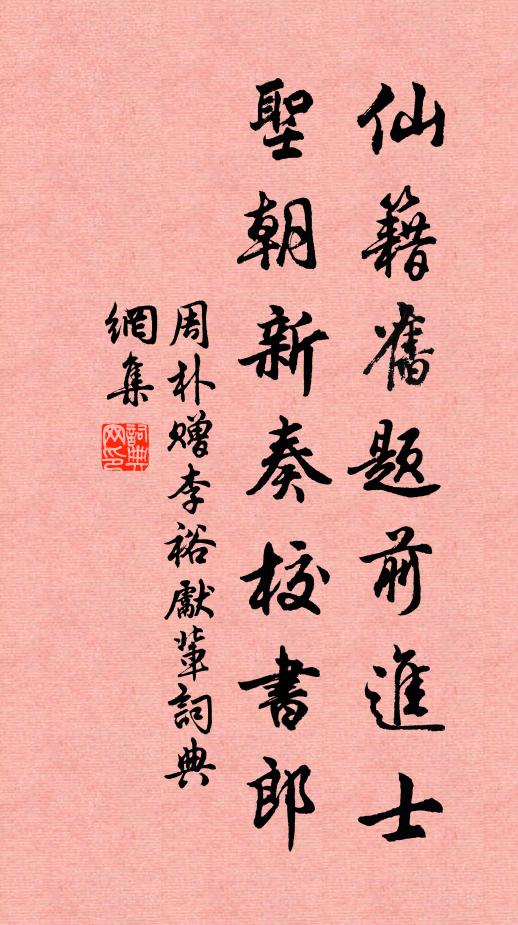 仙籍舊題前進士
聖朝新奏校書郎
周朴贈李裕獻輩詞典
網集
詞典
网印